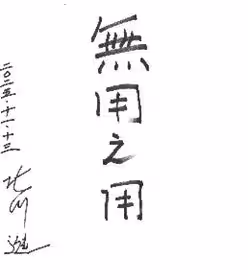 無用之用
二〇二五・十一・十三